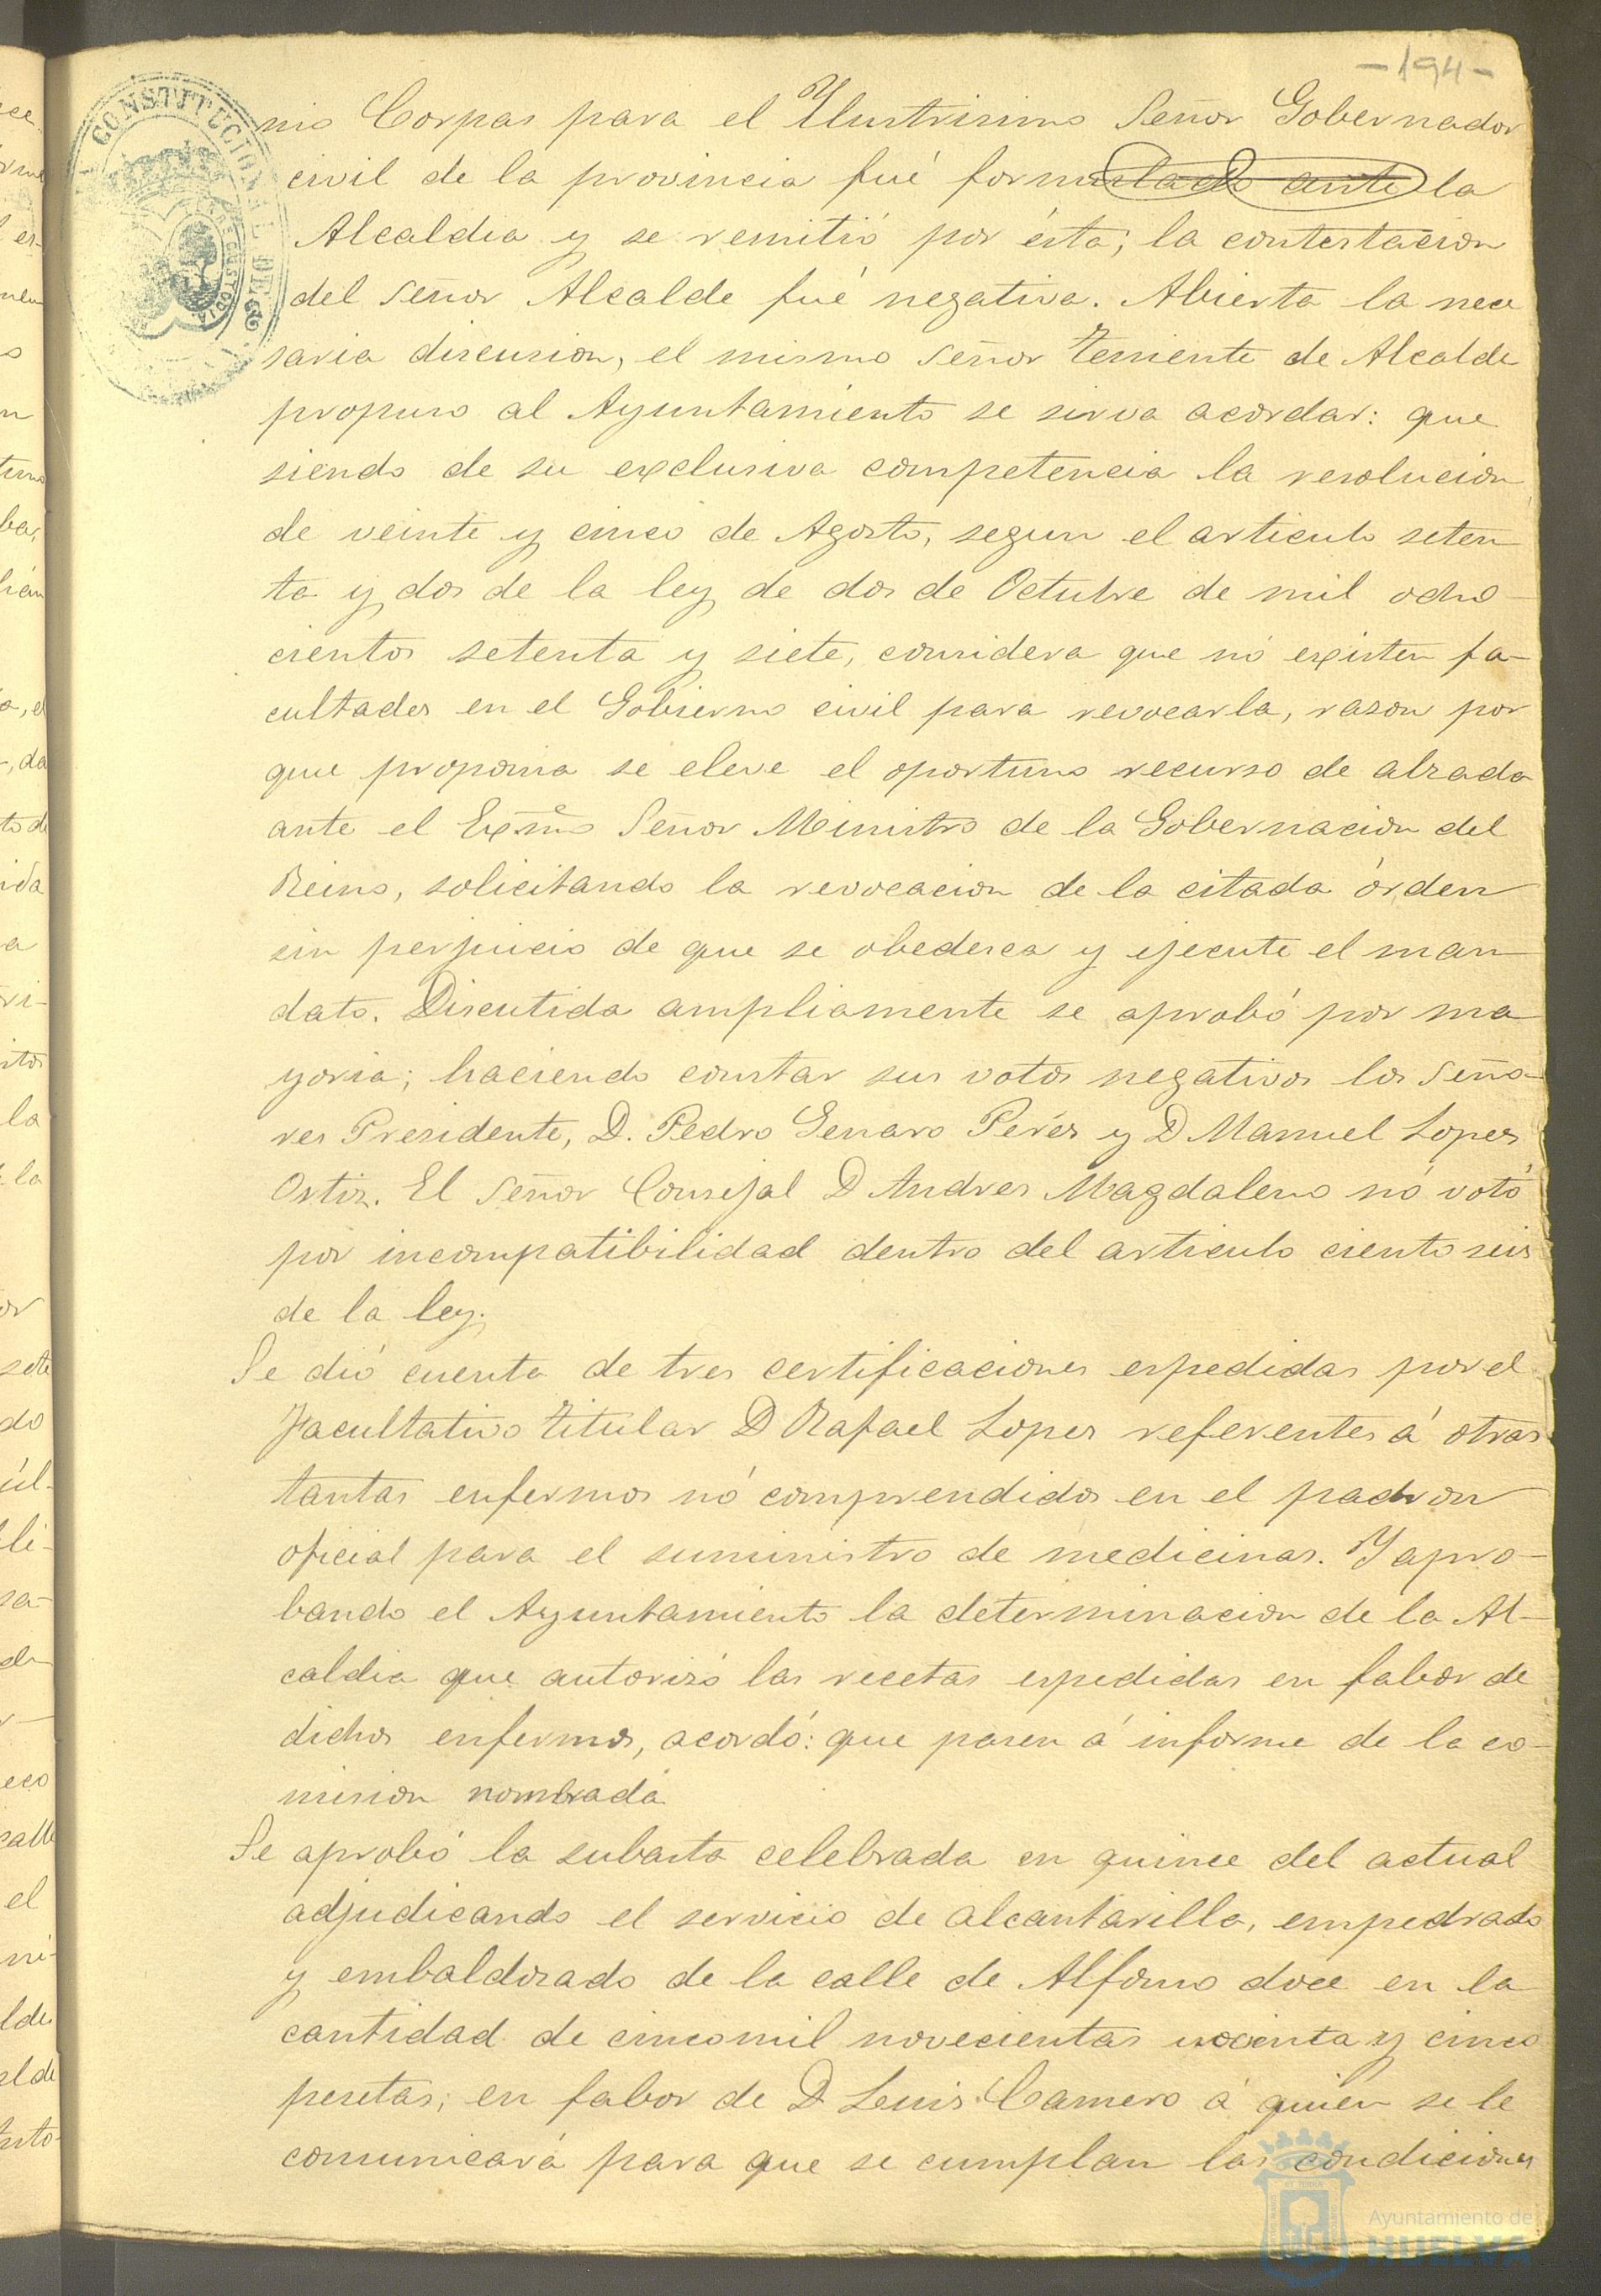 -194-
nio Corpas para el Ylustrisimo Señor Gobernador
civil de la provincia fué formulado ante la
Alcaldia y se remitió por ésta; la contestacion
del Señor Alcalde fué negativa. Abierta la nece
saria discusion, el mismo Señor Teniente de Alcalde
propuso al Ayuntamiento se sirva acordar: que
siendo de su exclusiva competencia la resolucion
de veinte y cinco de Agosto, segun el articulo seten
ta y dos de la ley de dos de Octubre de mil ocho-
cientos setenta y siete, considera que nó existen fa-
cultades en el Gobierno civil para revocarla, rason por
que proponia se eleve el oportuno recurso de alzada
ante el Exmo Señor Ministro de la Gobernacion del
Reino, solicitando la revocacion de la citada órden
sin perjuicio de que se obedesca y ejecute el man-
dato. Discutida ampliamente se aprobó por ma-
yoria; haciendo constar sus votos negativos los Seño-
res Presidente, D. Pedro Genaro Pérés y D Manuel Lopes
Ortiz. El Señor Consejal D Andres Magdaleno nó votó
por incompatibilidad dentro del articulo ciento seis
de la ley.
Se dió cuenta de tres certificaciones espedidas por el
Facultativo titular D Rafael Lopes referentes á otras
tantas enfermos nó comprendidos en el padron
oficial para el suministro de medicinas. Y apro-
bando el Ayuntamiento la determinacion de la Al-
caldia que autorisó las recetas espedidas en fabor de
dichos enfermos, acordó: que pasen á informe de la co-
mision nombrada
Se aprobó la subasta celebrada en quince del actual
adjudicando el servicio de alcantarilla, empedrado
y embaldosado de la calle de Alfonso doce en la
cantidad de cincomil novecientas noventa y cinco
pesetas; en fabor de D Luis Camero á quien se le
comunicará para que se cumplan las condiciones
CONSTITUCIONAL DE
Ayuntamiento de
HUELVA